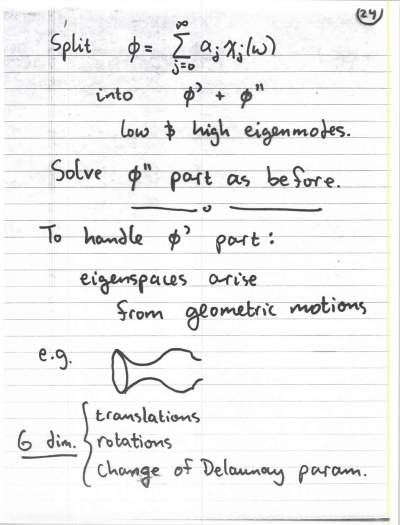 24
Split φ = ∞∑j=0 aj χj(ω)
into φ' + φ''
low & high eigenmodes.
Solve φ'' part as before.
To handle φ' part:
eigenspaces arise
from geometric motions
e.g.
6 dim. { translations
rotations
change of Delaunay param.